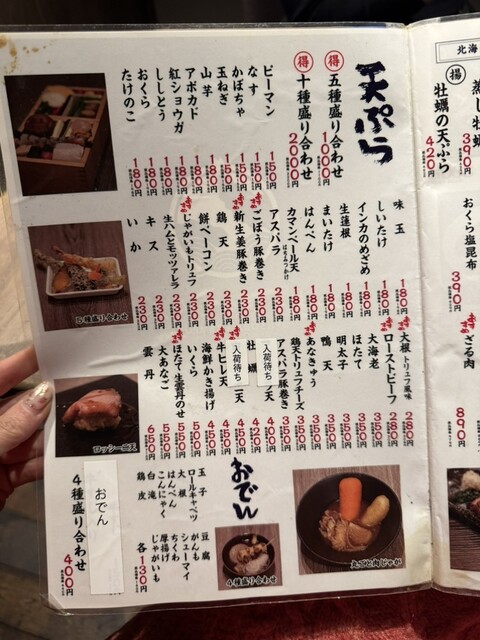 北海
蒸し牡蠣 390円
揚
牡蠣の天ぷら 420円
おくら塩昆布 390円
ざる肉 890円
天ぷら
得 五種盛り合わせ 1000円
得 十種盛り合わせ 2000円
ピーマン 150円
なす 150円
かぼちゃ 150円
玉ねぎ 150円
山芋
アボカド 180円
紅ショウガ 180円
ししとう 180円
おくら 180円
たけのこ 180円
味玉 180円
しいたけ 180円
インカのめざめ 180円
生蓮根 180円
まいたけ 180円
はんぺん 180円
カマンベール天 はちみつがけ
アスパラ 230円
ごぼう豚巻き 230円
新生姜豚巻き 230円
鶏天 230円
餅ベーコン 230円
じゃがいもトリュフ 230円
生ハムとモッツァレラ 230円
キス 230円
いか 230円
大根トリュフ風味 280円
ローストビーフ 280円
大海老 350円
ほたて 350円
明太子 350円
鴨天 350円
あなきゅう
鶏天トリュフチーズ
アスパラ豚巻き
入荷待ち 天
牡蠣 420円
入荷待ち 二天
牛ヒレ天 450円
海鮮かき揚げ 450円
いくら
ほたて生雲丹のせ 550円
大あなご 550円
雲丹 650円
五種盛り合わせ
ロッシーニ天
おでん
豆腐
がんも
シューマイ
ちくわ
厚揚げ
じゃがいも
玉子
ロールキャベツ
大根
はんぺん
こんにゃく
白滝
鶏皮
各130円
おでん
4種盛り合わせ 400円
4種盛り合わせ
丸ごと肉じゃが